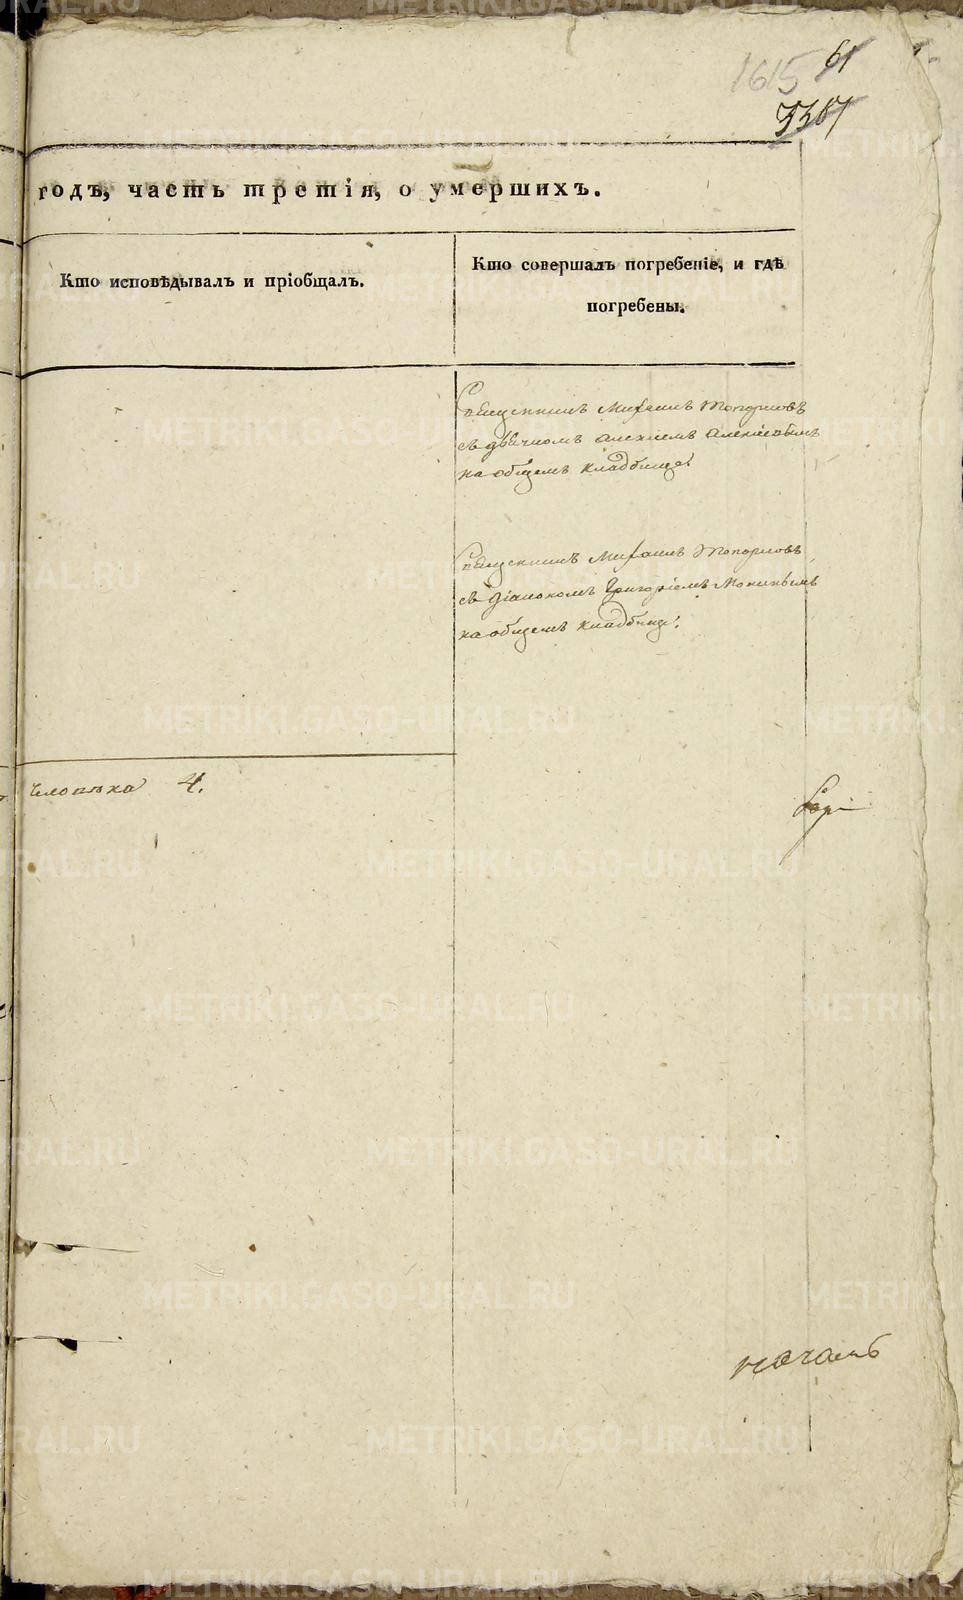 61
1615
годъ, часть третія, о умершихъ.
Кто исповѣдывалъ и пріобщалъ.
Кто совершалъ погребеніе, и гдѣ
погребены.
Священникъ Михаилъ Топорковъ
съ дьячкомъ Алексѣемъ Алексѣевымъ
на общемъ кладбище.
Священникъ Михаилъ Топорковъ
съ діакономъ Григоріемъ Мокинымъ
на общемъ кладбищѣ.
человѣка 4.
METRIKI.GASO-URAL.RU